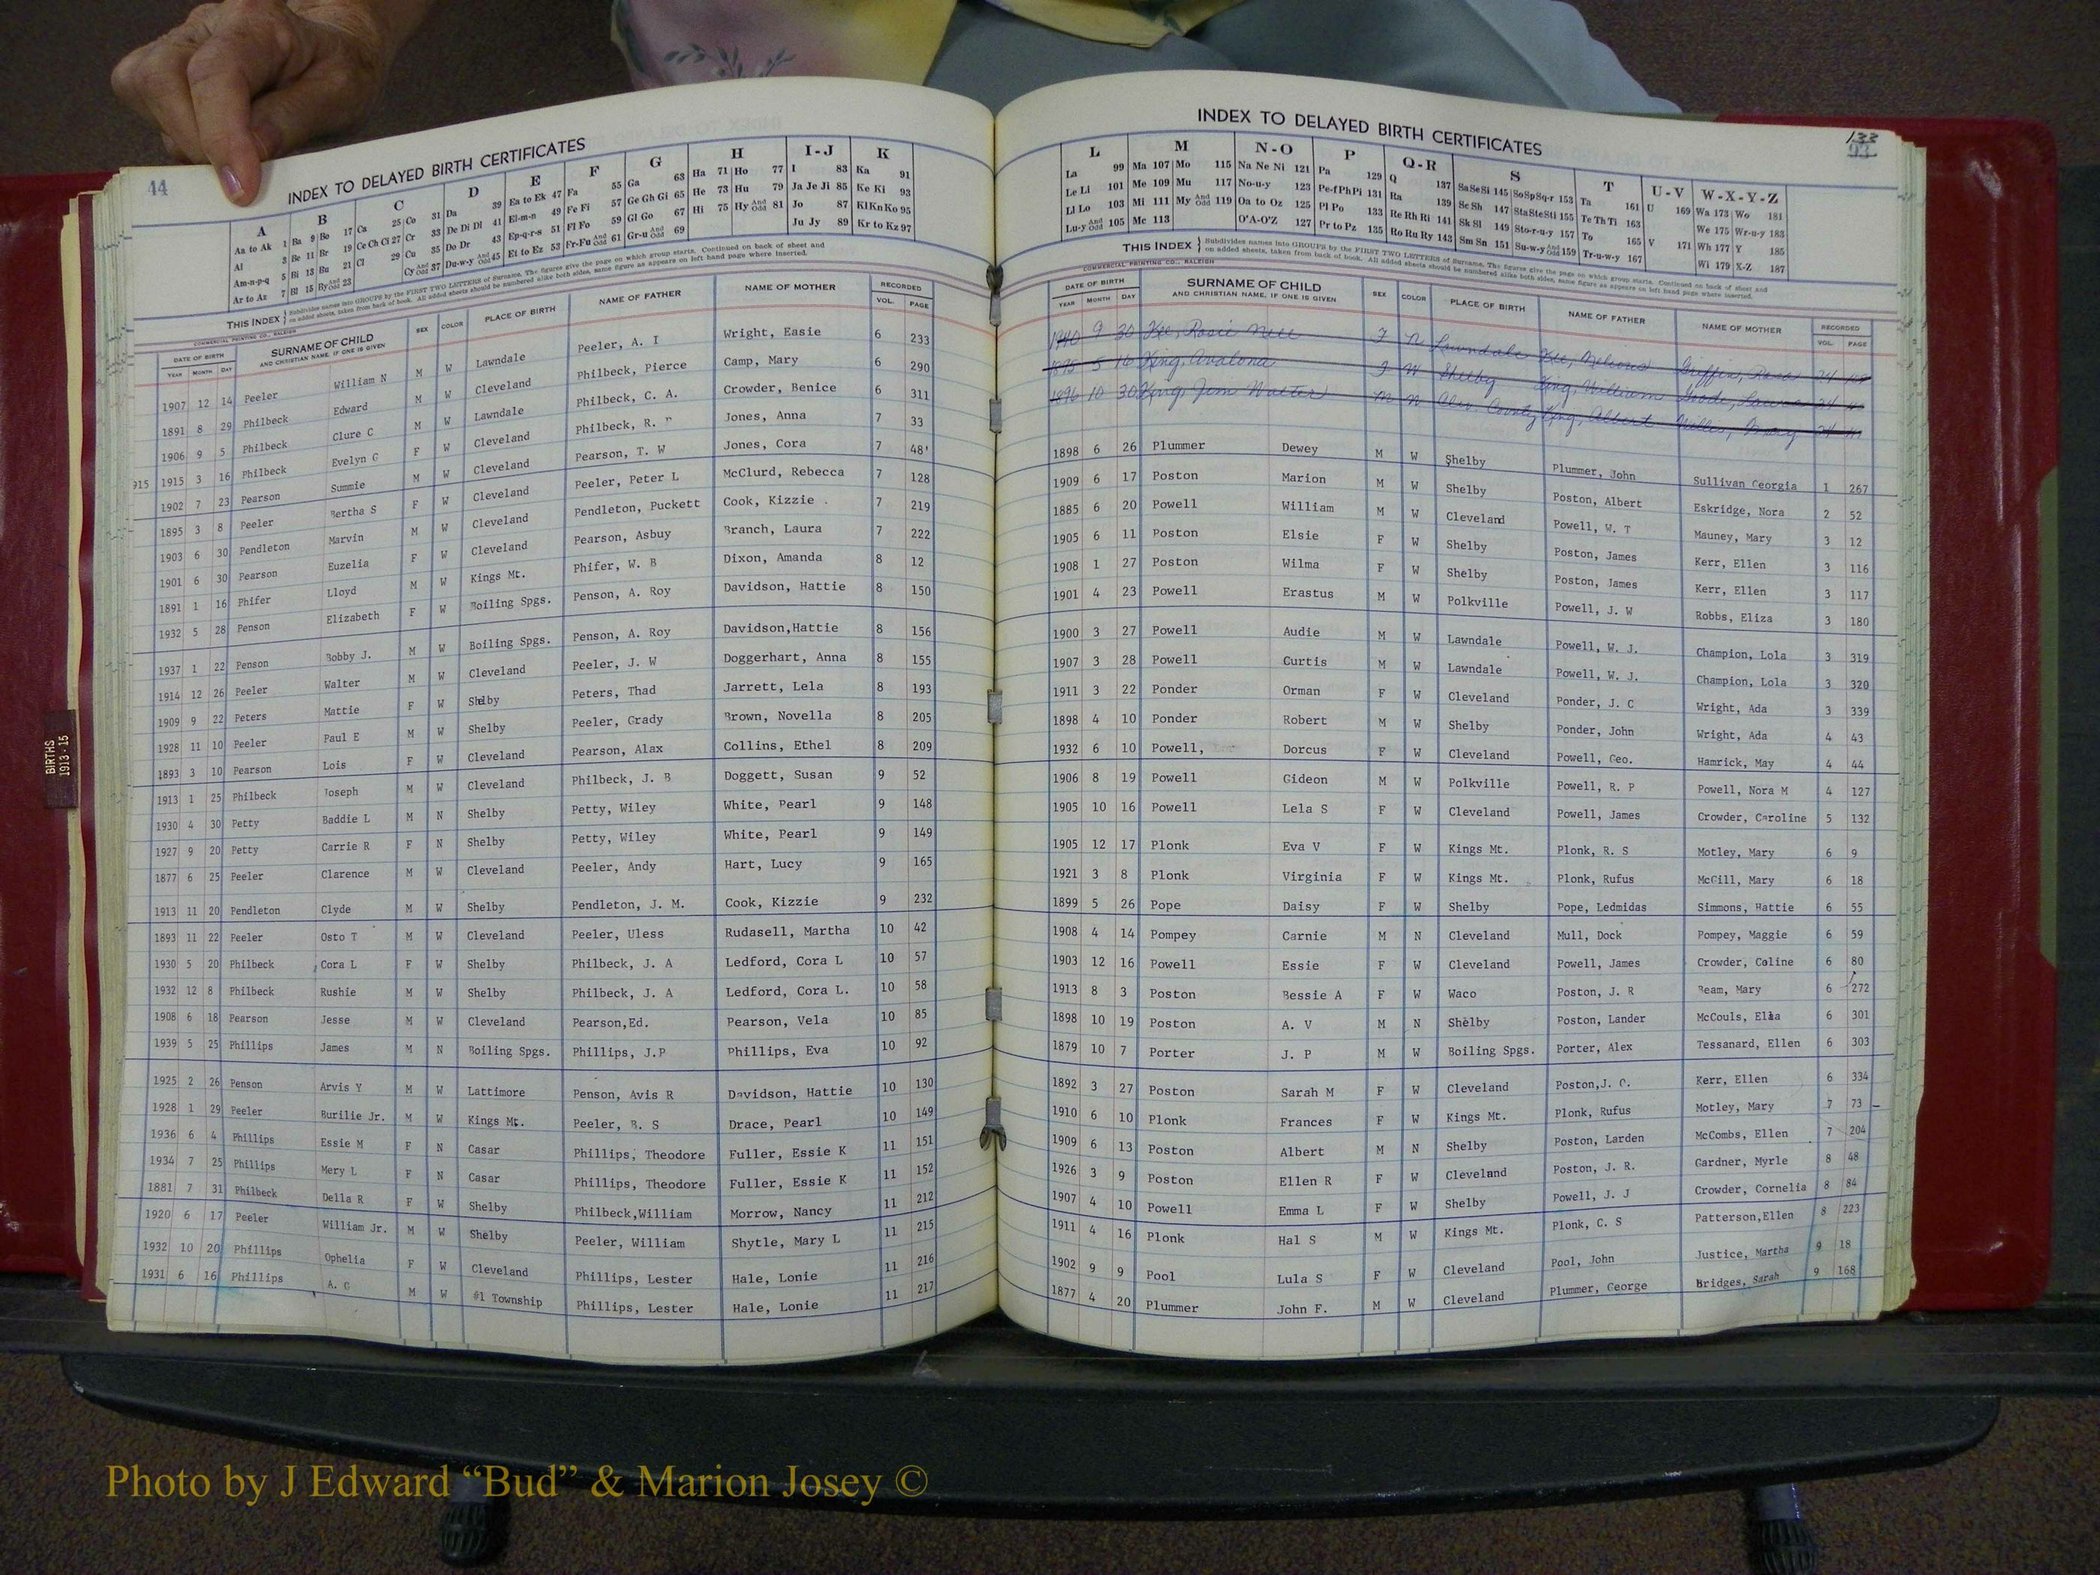 44
INDEX TO DELAYED BIRTH CERTIFICATES
A B C D E F G H I-J K
Aa to Ak 1 Ba 9 Bo 17 Ca 25 Co 31 Da 39 Ea to Ek 47 Fa 55 Ga 63 Ha 71 Ho 77 I 83 Ka 91
Al 3 Be 11 Br 19 Ce Ch Ci 27 Cr 33 De Di Dl 41 El-m-n 49 Fe Fi 57 Ge Gh Gi 65 He 73 Hu 79 Ja Je Ji 85 Ke Ki 93
Am-n-p-q 5 Bi 13 Bu 21 Cl 29 Cu 35 Do Dr 43 Ep-q-r-s 51 Fl Fo 59 Gl Go 67 Hi 75 Hy And Odd 81 Jo 87 Kl Kn Ko 95
Ar to Az 7 Bl 15 By And Odd 23 Cy And Odd 37 Du-w-y And Odd 45 Et to Ez 53 Fr-Fu And Odd 61 Gr-u And Odd 69 Ju Jy 89 Kr to Kz 97
THIS INDEX Subdivides names into GROUPS by the FIRST TWO LETTERS of Surname. The figures give the page on which group starts. Continued on back of sheet and
on added sheets, taken from back of book. All added sheets should be numbered alike both sides, same figure as appears on left hand page where inserted.
COMMERCIAL PRINTING CO., RALEIGH
DATE OF BIRTH SURNAME OF CHILD SEX COLOR PLACE OF BIRTH NAME OF FATHER NAME OF MOTHER RECORDED
YEAR MONTH DAY AND CHRISTIAN NAME, IF ONE IS GIVEN VOL. PAGE
1907 12 14 Peeler William N M W Lawndale Peeler, A. I Wright, Easie 6 233
1891 8 29 Philbeck Edward M W Cleveland Philbeck, Pierce Camp, Mary 6 290
1906 9 5 Philbeck Clure C M W Lawndale Philbeck, C. A. Crowder, Benice 6 311
915 1915 3 16 Philbeck Evelyn G F W Cleveland Philbeck, R. P Jones, Anna 7 33
1902 7 23 Pearson Summie M W Cleveland Pearson, T. W Jones, Cora 7 48
1895 3 8 Peeler Bertha S F W Cleveland Peeler, Peter L McClurd, Rebecca 7 128
1903 6 30 Pendleton Marvin M W Cleveland Pendleton, Puckett Cook, Kizzie . 7 219
1901 6 30 Pearson Euzelia F W Cleveland Pearson, Asbuy Branch, Laura 7 222
1891 1 16 Phifer Lloyd M W Kings Mt. Phifer, W. B Dixon, Amanda 8 12
1932 5 28 Penson Elizabeth F W Boiling Spgs. Penson, A. Roy Davidson, Hattie 8 150
1937 1 22 Penson Bobby J. M W Boiling Spgs. Penson, A. Roy Davidson,Hattie 8 156
1914 12 26 Peeler Walter M W Cleveland Peeler, J. W Doggerhart, Anna 8 155
1909 9 22 Peters Mattie F W Shelby Peters, Thad Jarrett, Lela 8 193
1928 11 10 Peeler Paul E M W Shelby Peeler, Grady Brown, Novella 8 205
1893 3 10 Pearson Lois F W Cleveland Pearson, Alax Collins, Ethel 8 209
1913 1 25 Philbeck Joseph M W Cleveland Philbeck, J. B Doggett, Susan 9 52
1930 4 30 Petty Baddie L M N Shelby Petty, Wiley White, Pearl 9 148
1927 9 20 Petty Carrie R F N Shelby Petty, Wiley White, Pearl 9 149
1877 6 25 Peeler Clarence M W Cleveland Peeler, Andy Hart, Lucy 9 165
1913 11 20 Pendleton Clyde M W Shelby Pendleton, J. M. Cook, Kizzie 9 232
1893 11 22 Peeler Osto T M W Cleveland Peeler, Uless Rudasell, Martha 10 42
1930 5 20 Philbeck Cora L F W Shelby Philbeck, J. A Ledford, Cora L 10 57
1932 12 8 Philbeck Rushie M W Shelby Philbeck, J. A Ledford, Cora L. 10 58
1908 6 18 Pearson Jesse M W Cleveland Pearson,Ed. Pearson, Vela 10 85
1939 5 25 Phillips James M N Boiling Spgs. Phillips, J.P Phillips, Eva 10 92
1925 2 26 Penson Arvis Y M W Lattimore Penson, Avis R Davidson, Hattie 10 130
1928 1 29 Peeler Burilie Jr. M W Kings Mt. Peeler, B. S Drace, Pearl 10 149
1936 6 4 Phillips Essie M F N Casar Phillips, Theodore Fuller, Essie K 11 151
1934 7 25 Phillips Mery L F N Casar Phillips, Theodore Fuller, Essie K 11 152
1881 7 31 Philbeck Della R F W Shelby Philbeck,William Morrow, Nancy 11 212
1920 6 17 Peeler William Jr. M W Shelby Peeler, William Shytle, Mary L 11 215
1932 10 20 Phillips Ophelia F W Cleveland Phillips, Lester Hale, Lonie 11 216
1931 6 16 Phillips A. G M W #1 Township Phillips, Lester Hale, Lonie 11 217
BIRTHS
1913-15
133
93
INDEX TO DELAYED BIRTH CERTIFICATES
L M N-O P Q-R S T U-V W-X-Y-Z
La 99 Ma 107 Mo 115 Na Ne Ni 121 Pa 129 Q 137 Sa Se Si 145 So Sp Sq-r 153 Ta 161 U 169 Wa 173 Wo 181
Le Li 101 Me 109 Mu 117 No-u-y 123 Pe-f Ph Pi 131 Ra 139 Sc Sh 147 Sta Ste Sti 155 Te Th Ti 163 We 175 Wr-u-y 183
Ll Lo 103 Mi 111 My And Odd 119 Oa to Oz 125 Pl Po 133 Re Rh Ri 141 Sk Sl 149 Sto-r-u-y 157 To 165 V 171 Wh 177 Y 185
Lu-y And Odd 105 Mc 113 O'A-O'Z 127 Pr to Pz 135 Ro Ru Ry 143 Sm Sn 151 Su-w-y And Odd 159 Tr-u-w-y 167 Wi 179 X-Z 187
THIS INDEX Subdivides names into GROUPS by the FIRST TWO LETTERS of Surname. The figures give the page on which group starts. Continued on back of sheet and
on added sheets, taken from back of book. All added sheets should be numbered alike both sides, same figure as appears on left hand page where inserted.
COMMERCIAL PRINTING CO., RALEIGH
DATE OF BIRTH SURNAME OF CHILD SEX COLOR PLACE OF BIRTH NAME OF FATHER NAME OF MOTHER RECORDED
YEAR MONTH DAY AND CHRISTIAN NAME, IF ONE IS GIVEN VOL. PAGE
1940 9 30 Kee, Rosie Nell F N Lawndale Kee, Nelson Griffin, 24
1895 5 16 King, Avalona F W Shelby King, William Goode, 24
1896 10 30 King, Jim Walter M N Clev. County King, Albert Mary 24
1898 6 26 Plummer Dewey M W Shelby Plummer, John Sullivan Georgia 1 267
1909 6 17 Poston Marion M W Shelby Poston, Albert Eskridge, Nora 2 52
1885 6 20 Powell William M W Cleveland Powell, W. T Mauney, Mary 3 12
1905 6 11 Poston Elsie F W Shelby Poston, James Kerr, Ellen 3 116
1908 1 27 Poston Wilma F W Shelby Poston, James Kerr, Ellen 3 117
1901 4 23 Powell Erastus M W Polkville Powell, J. W Robbs, Eliza 3 180
1900 3 27 Powell Audie M W Lawndale Powell, W. J. Champion, Lola 3 319
1907 3 28 Powell Curtis M W Lawndale Powell, W. J. Champion, Lola 3 320
1911 3 22 Ponder Orman F W Cleveland Ponder, J. C Wright, Ada 3 339
1898 4 10 Ponder Robert M W Shelby Ponder, John Wright, Ada 4 43
1932 6 10 Powell, Dorcus F W Cleveland Powell, Geo. Hamrick, May 4 44
1906 8 19 Powell Gideon M W Polkville Powell, R. P Powell, Nora M 4 127
1905 10 16 Powell Lela S F W Cleveland Powell, James Crowder, Caroline 5 132
1905 12 17 Plonk Eva V F W Kings Mt. Plonk, R. S Motley, Mary 6 9
1921 3 8 Plonk Virginia F W Kings Mt. Plonk, Rufus McGill, Mary 6 18
1899 5 26 Pope Daisy F W Shelby Pope, Ledmidas Simmons, Hattie 6 55
1908 4 14 Pompey Carnie M N Cleveland Mull, Dock Pompey, Maggie 6 59
1903 12 16 Powell Essie F W Cleveland Powell, James Crowder, Coline 6 80
1913 8 3 Poston Bessie A F W Waco Poston, J. R Beam, Mary 6 272
1898 10 19 Poston A. V M N Shelby Poston, Lander McCouls, Ella 6 301
1879 10 7 Porter J. P M W Boiling Spgs. Porter, Alex Tessanard, Ellen 6 303
1892 3 27 Poston Sarah M F W Cleveland Poston,J. C. Kerr, Ellen 6 334
1910 6 10 Plonk Frances F W Kings Mt. Plonk, Rufus Motley, Mary 7 73
1909 6 13 Poston Albert M N Shelby Poston, Larden McCombs, Ellen 7 204
1926 3 9 Poston Ellen R F W Cleveland Poston, J. R. Gardner, Myrle 8 48
1907 4 10 Powell Emma L F W Shelby Powell, J. J Crowder, Cornelia 8 84
1911 4 16 Plonk Hal S M W Kings Mt. Plonk, C. S Patterson,Ellen 8 223
1902 9 9 Pool Lula S F W Cleveland Pool, John Justice, Martha 9 18
1877 4 20 Plummer John F. M W Cleveland Plummer, George Bridges, Sarah 9 168
Photo by J Edward “Bud” & Marion Josey ©